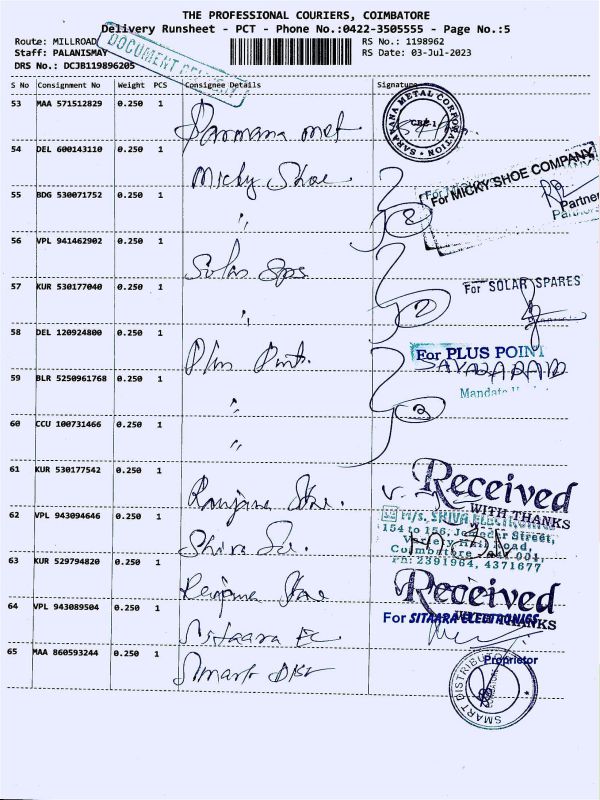 THE PROFESSIONAL COURIERS, COIMBATORE
Delivery Runsheet - PCT - Phone No.:0422-3505555 - Page No.:5
Route: MILLROAD RS No.: 1198962
Staff: PALANISMAY RS Date: 03-Jul-2023
DRS No.: DCJB119896205
DOCUMENT
S No Consignment No Weight PCS Consignee Details Signature
53 MAA 571512829 0.250 1
SARAVANA METAL CORPORATION
CBE-1
54 DEL 600143110 0.250 1 Micky Shoe
For MICKY SHOE COMPANY
Partner
55 BDG 530071752 0.250 1 "
2
56 VPL 941462902 0.250 1 Solar Sps
57 KUR 530177040 0.250 1 "
2
For SOLAR SPARES
58 DEL 120924800 0.250 1 Plus Point.
For PLUS POINT
59 BLR 5250961768 0.250 1 "
3
60 CCU 100731466 0.250 1 "
61 KUR 530177542 0.250 1 Ranjana Stre.
Received
WITH THANKS
62 VPL 943094646 0.250 1 Shiva
M/s. SHIVA ELECTRONICS
154 to 156, Street,
Variety Hall Road,
Coimbatore 001.
Ph: 2391964, 4371677
63 KUR 529794820 0.250 1
Received
THANKS
64 VPL 943089504 0.250 1 Sitaara Ec
For SITAARA ELECTRONICS
Proprietor
65 MAA 860593244 0.250 1 Smart
SMART DISTRIBUTORS
COIMBATORE